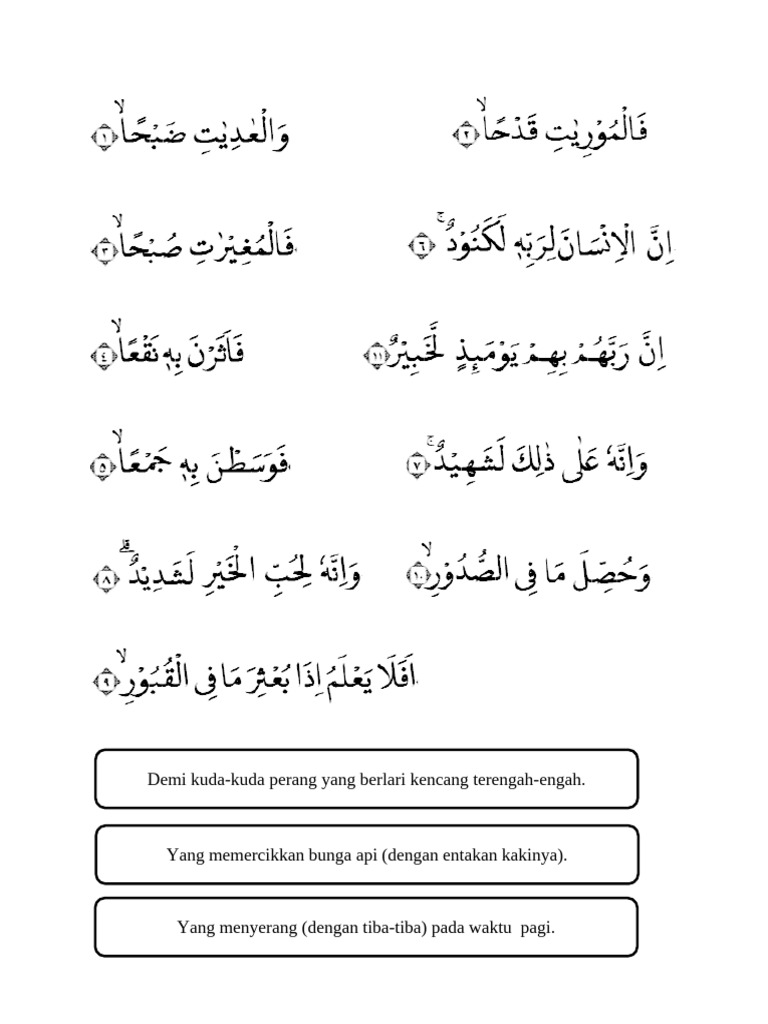 وَالْعٰدِيٰتِ ضَبْحًاۙ ١
فَالْمُوْرِيٰتِ قَدْحًاۙ ٢
فَالْمُغِيْرٰتِ صُبْحًاۙ ٣
اِنَّ الْاِنْسَانَ لِرَبِّهٖ لَكَنُوْدٌۚ ٦
فَاَثَرْنَ بِهٖ نَقْعًاۙ ٤
اِنَّ رَبَّهُمْ بِهِمْ يَوْمَىِٕذٍ لَّخَبِيْرٌ ١١
فَوَسَطْنَ بِهٖ جَمْعًاۙ ٥
وَاِنَّهٗ عَلٰى ذٰلِكَ لَشَهِيْدٌۚ ٧
وَاِنَّهٗ لِحُبِّ الْخَيْرِ لَشَدِيْدٌۗ ٨
وَحُصِّلَ مَا فِى الصُّدُوْرِۙ ١٠
اَفَلَا يَعْلَمُ اِذَا بُعْثِرَ مَا فِى الْقُبُوْرِۙ ٩
Demi kuda-kuda perang yang berlari kencang terengah-engah.
Yang memercikkan bunga api (dengan entakan kakinya).
Yang menyerang (dengan tiba-tiba) pada waktu pagi.